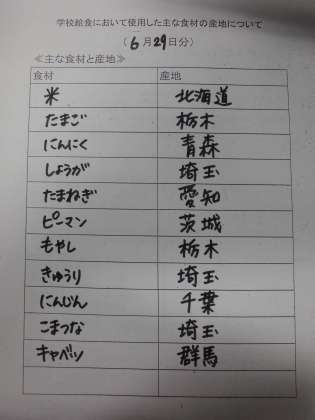 学校給食において使用した主な食材の産地について
(6月29日分)
≪主な食材と産地≫
食材 産地
米 北海道
たまご 栃木
にんにく 青森
しょうが 埼玉
たまねぎ 愛知
ピーマン 茨城
もやし 栃木
きゅうり 埼玉
にんじん 千葉
こまつな 埼玉
キャベツ 群馬